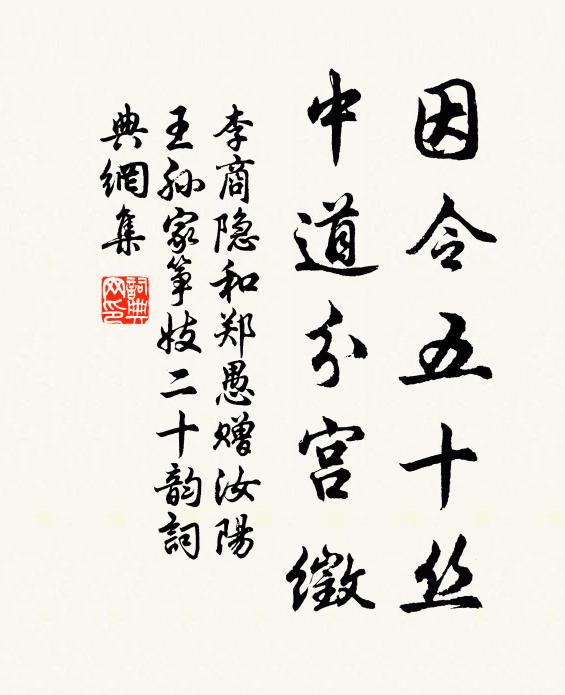 因令五十丝
中道分宫徵
李商隐和郑愚赠汝陽
王孙家筝妓二十韵詞
典網集
詞典网印